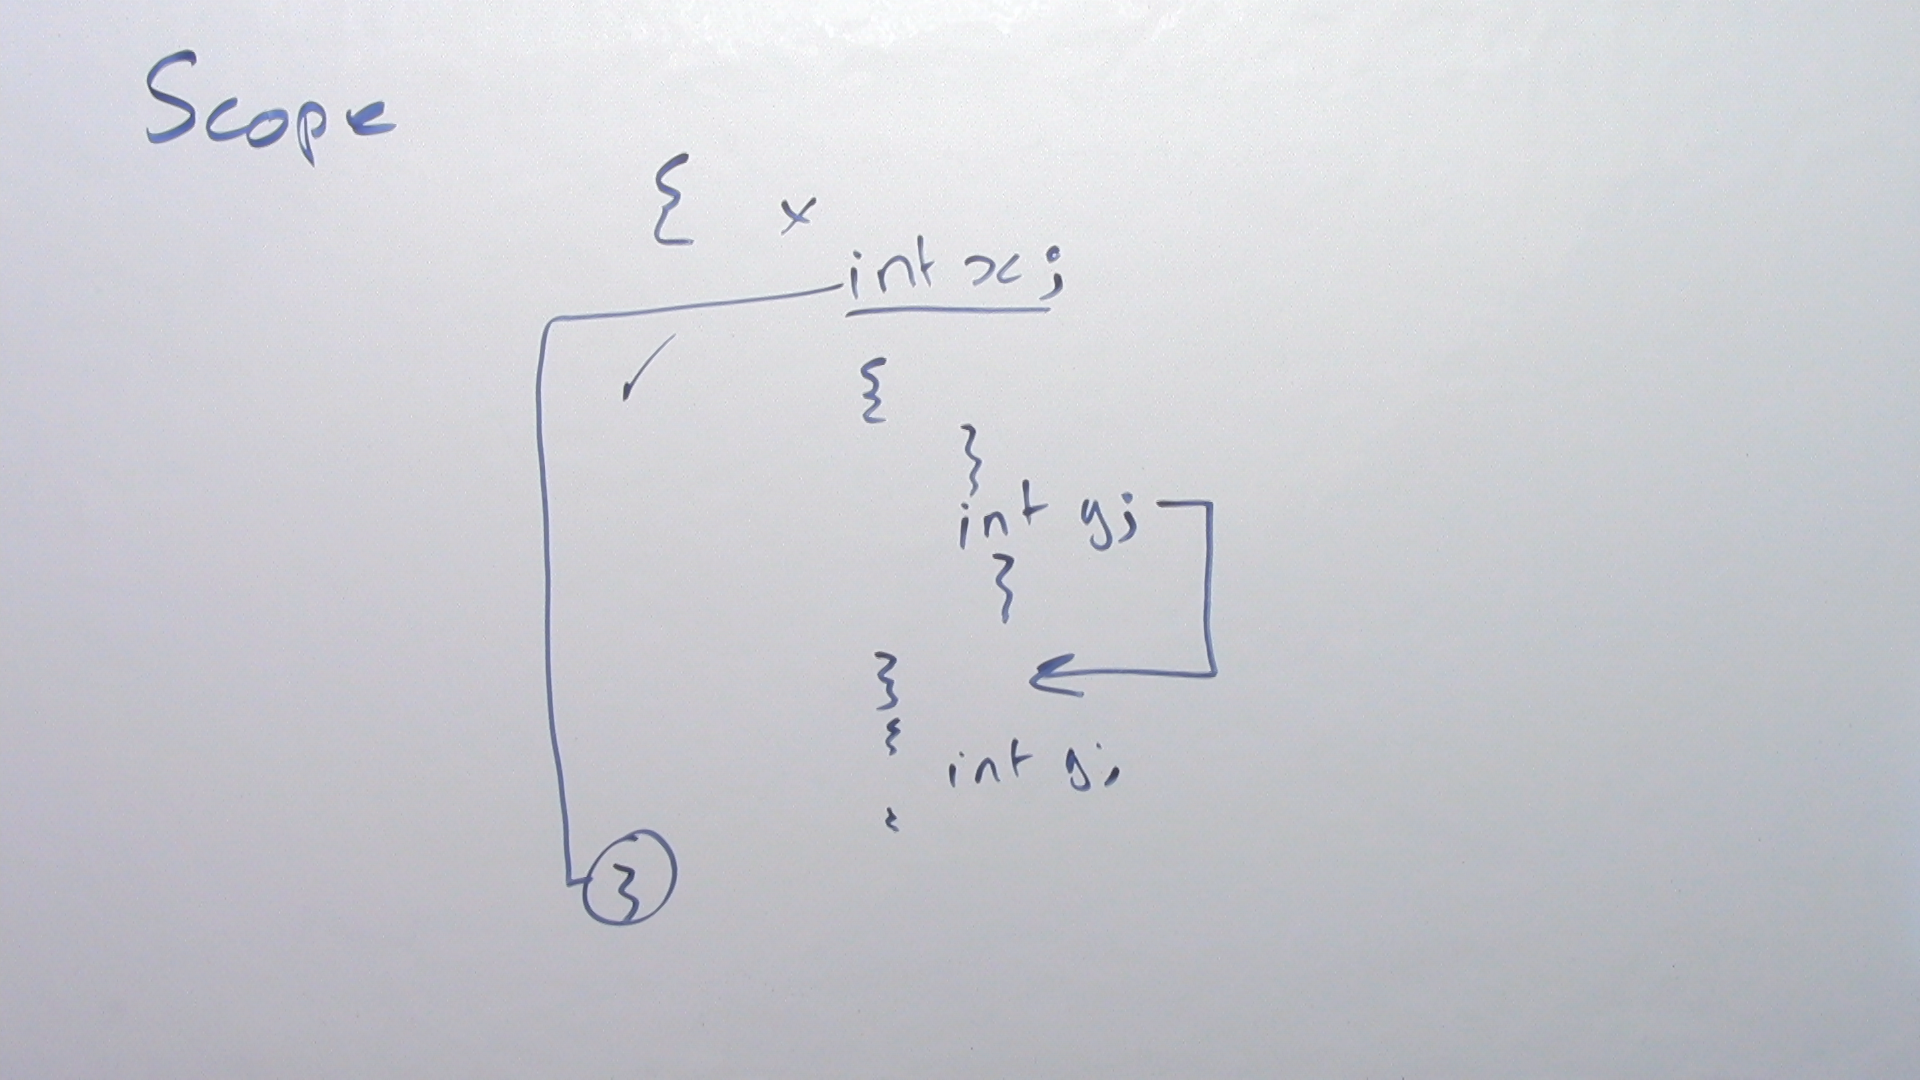 Scope
{ x
int x;
{
}
int y;
}
}
{
int y;
{
}